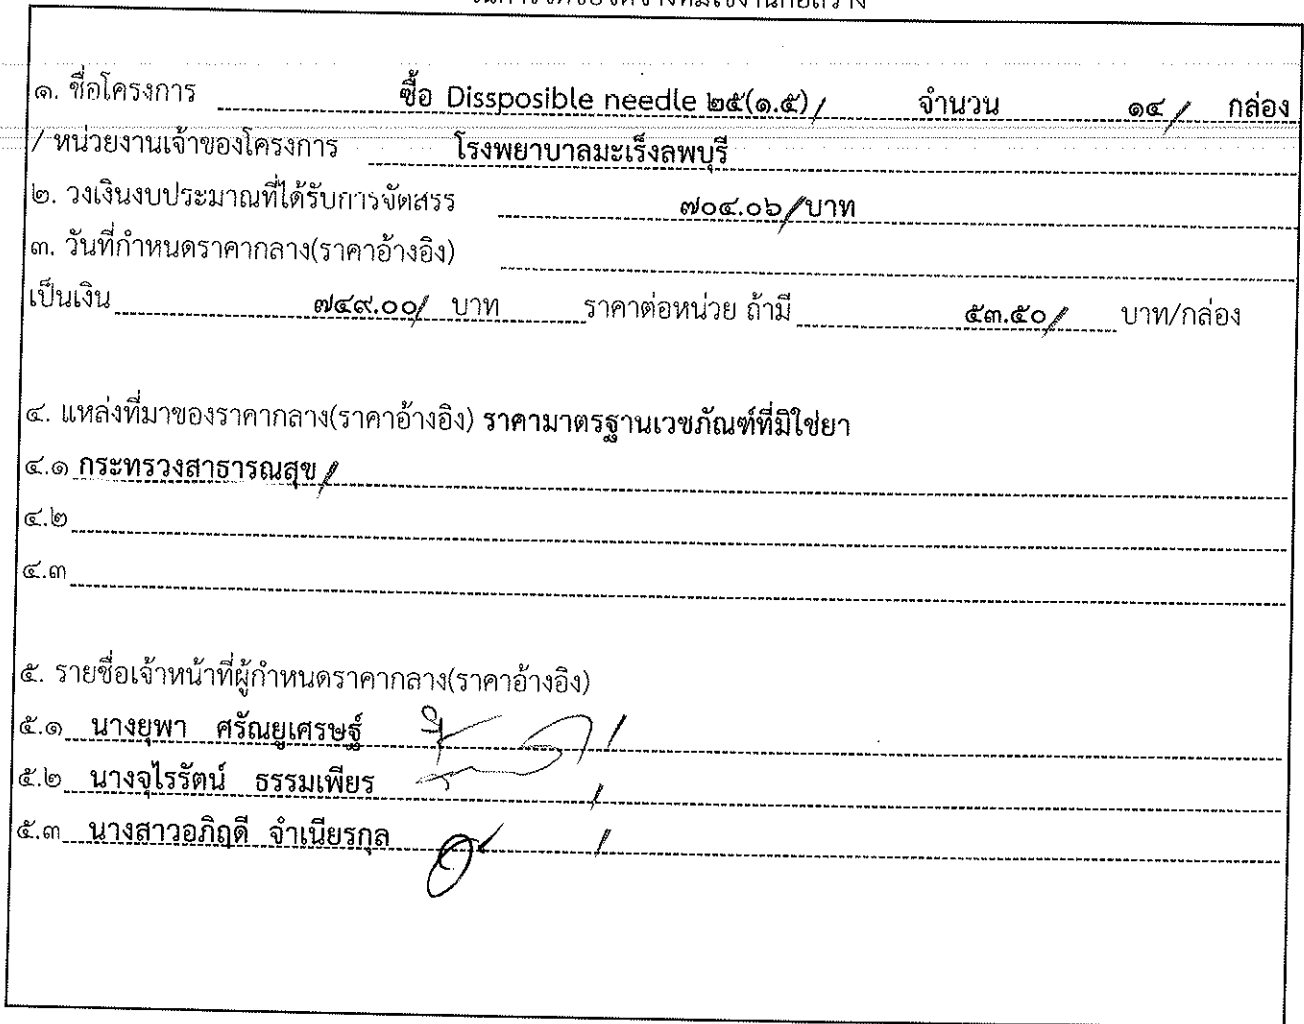 ในการจัดซื้อจัดจ้างที่มิใช่งานก่อสร้าง
๑. ชื่อโครงการ ซื้อ Dissposible needle ๒๕(๑.๕)/ จำนวน ๑๔/ กล่อง
/ หน่วยงานเจ้าของโครงการ โรงพยาบาลมะเร็งลพบุรี
๒. วงเงินงบประมาณที่ได้รับการจัดสรร ๗๐๔.๐๖/บาท
๓. วันที่กำหนดราคากลาง(ราคาอ้างอิง)
เป็นเงิน ๗๔๙.๐๐/ บาท ราคาต่อหน่วย ถ้ามี ๕๓.๕๐/ บาท/กล่อง
๔. แหล่งที่มาของราคากลาง(ราคาอ้างอิง) ราคามาตรฐานเวชภัณฑ์ที่มิใช่ยา
๔.๑ กระทรวงสาธารณสุข/
๔.๒
๔.๓
๕. รายชื่อเจ้าหน้าที่ผู้กำหนดราคากลาง(ราคาอ้างอิง)
๕.๑ นางยุพา ศรัณยูเศรษฐ์ /
๕.๒ นางจุไรรัตน์ ธรรมเพียร /
๕.๓ นางสาวอภิฤดี จำเนียรกุล /